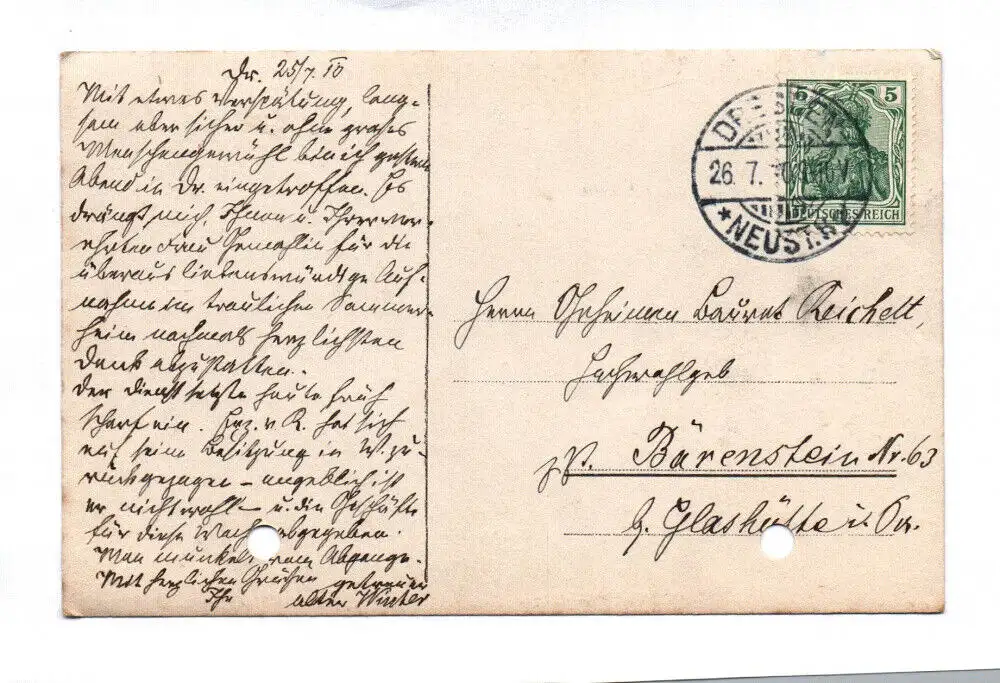 Dr. 25/7. 10
Mit etwas Verspätung, lang-
sam aber sicher u. ohne großes
Menschengewühl bin ich gestern
Abend in Dr. eingetroffen. Es
drängt mich, Ihnen u. Ihrer ver-
ehrten Frau Gemahlin für die
überaus liebenswürdige Auf-
nahme im traulichen Sommer-
heim nochmals herzlichsten
Dank abzustatten.
Der Dienst setzte heute früh
scharf ein. Exz. v. R. hat sich
auf seine Besitzung in W. zu-
rückgezogen – angeblich ist
er nicht wohl – u. die Geschäfte
für diese Woche abgegeben.
Man munkelt vom Abgange.
Mit herzlichen Grüßen
Ihr getreuer
alter Winter
DRESDEN
26. 7. 10 V.
* NEUST.
5 5
DEUTSCHES REICH
Herrn Geheimen Baurat Reichelt,
Hochwohlgeb
Bärenstein Nr. 63
b. Glashütte i. Sa.